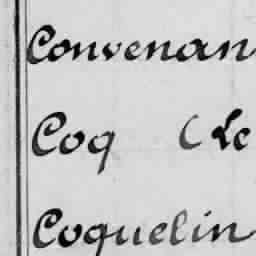 Convenan
Coq (Le
Coquelin